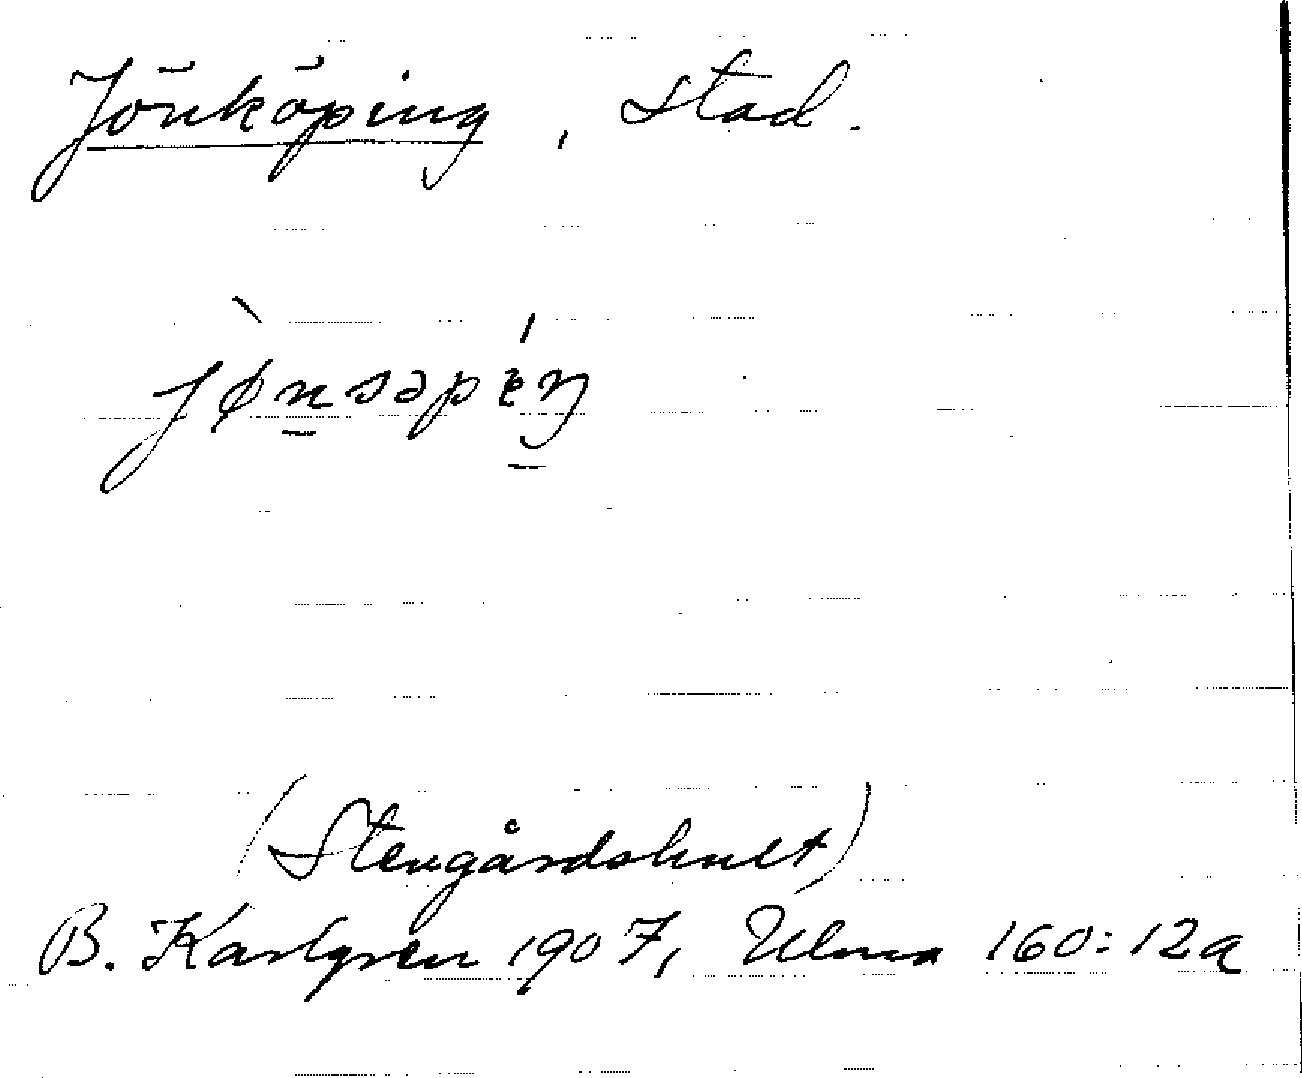 Jönköping, stad.
jø̀n̲səpéŋ̲
(Stengårdshult)
B. Karlgren 1907, Ulma 160:12a